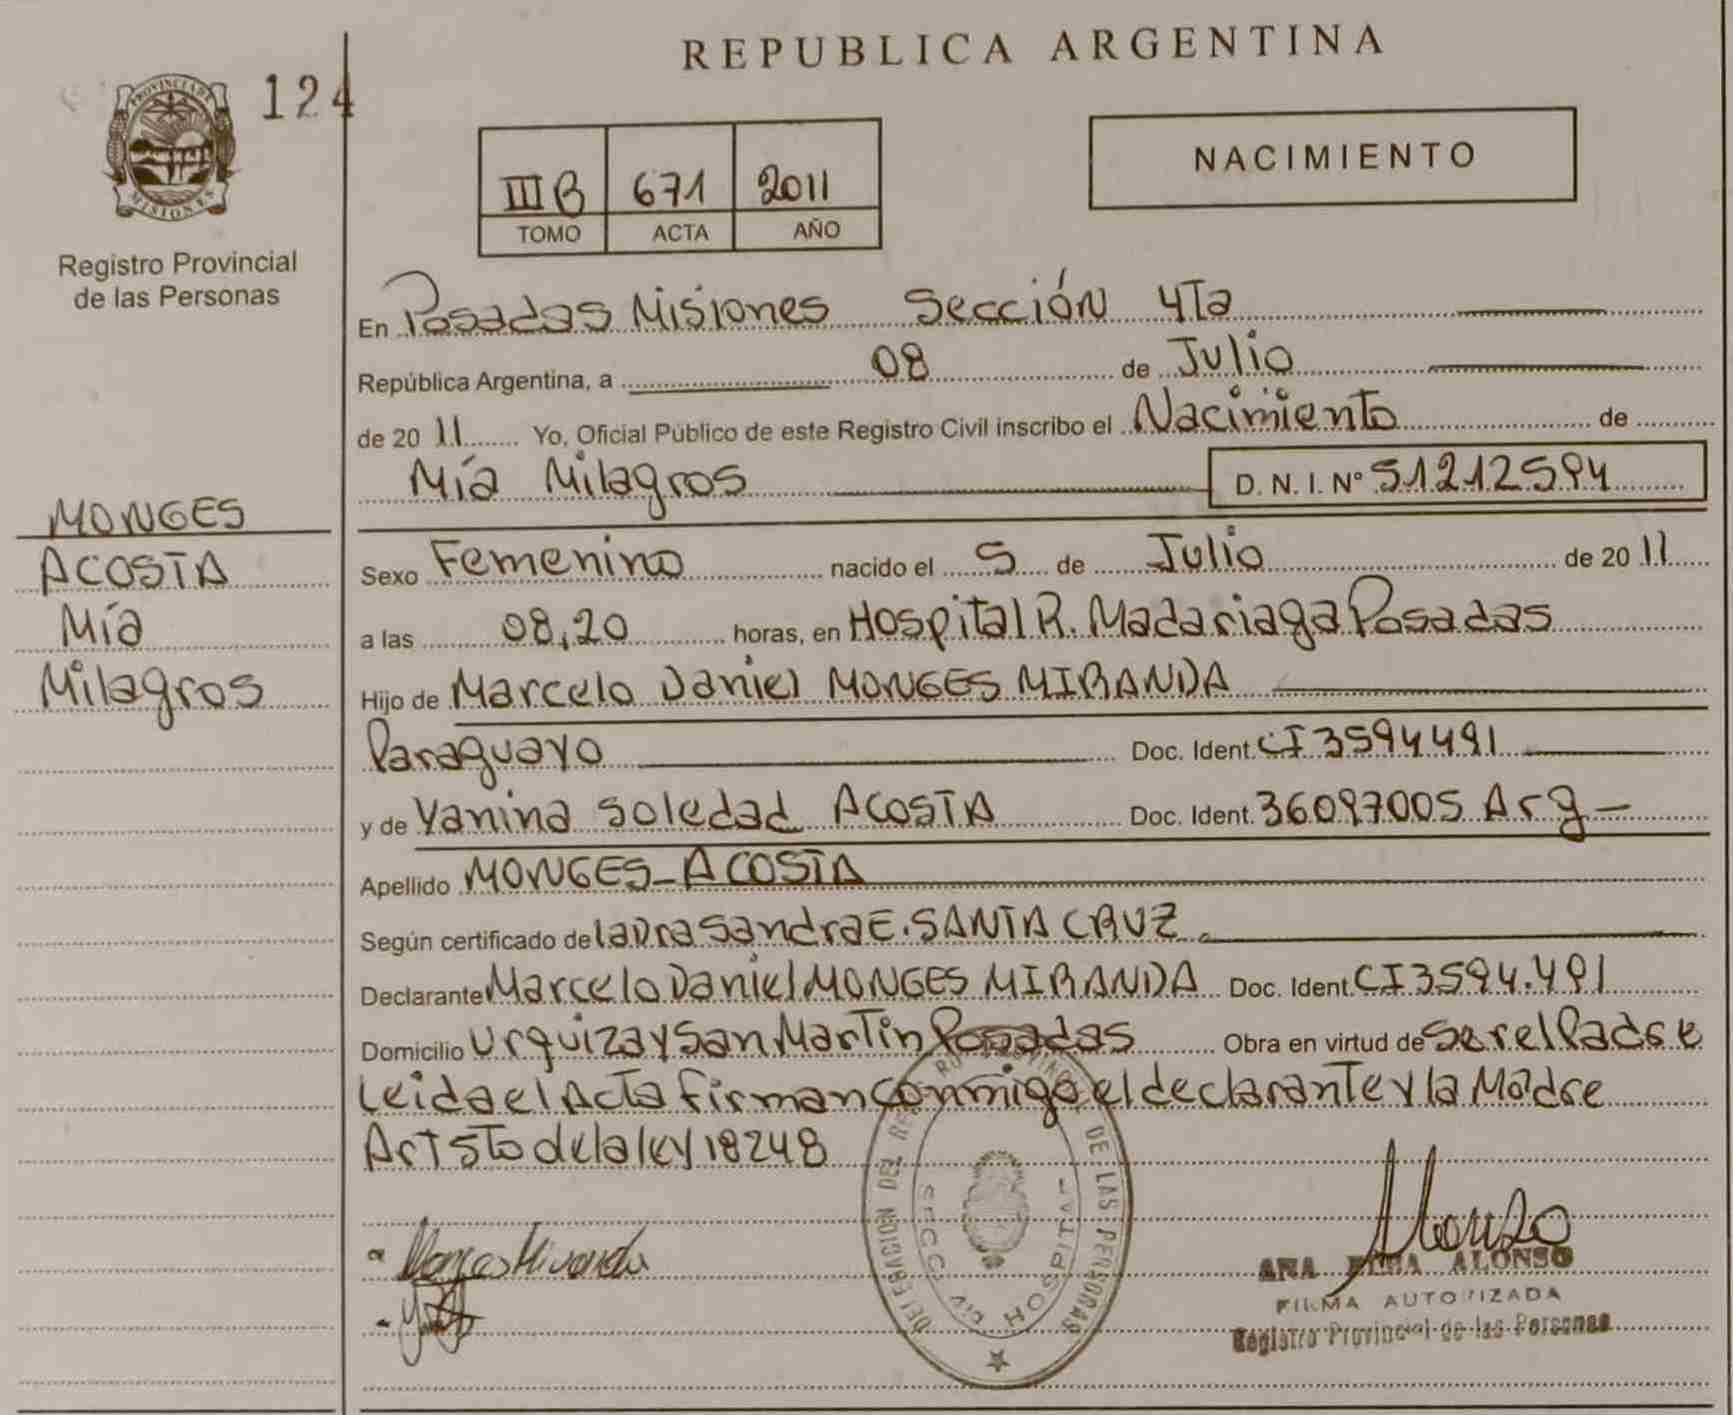 REPUBLICA ARGENTINA
124
PROVINCIA DE
MISIONES
Registro Provincial
de las Personas
NACIMIENTO
III B 671 2011
TOMO ACTA AÑO
En Posadas Misiones Sección 4Ta
República Argentina, a 08 de Julio
de 2011 Yo, Oficial Público de este Registro Civil inscribo el Nacimiento de
Mía Milagros D. N. I. Nº 51212594
MONGES
ACOSTA
Mía
Milagros
Sexo Femenino nacido el 5 de Julio de 2011
a las 08,20 horas, en Hospital R. Madariaga Posadas
Hijo de Marcelo Daniel MONGES MIRANDA
Paraguayo Doc. Ident. CI 3594491
y de Yanina Soledad ACOSTA Doc. Ident. 36097005 Arg
Apellido MONGES-ACOSTA
Según certificado de la Dra Sandra E. SANTA CRUZ
Declarante Marcelo Daniel MONGES MIRANDA Doc. Ident. CI 3594.491
Domicilio Urquiza y San Martin Posadas Obra en virtud de Ser el Padre
Leida el Acta Firman conmigo el declarante y la Madre
Art 5to de la ley 18248
Monges Miranda
DELEGACION DEL REGISTRO DE LAS PERSONAS
SECC. DIV HOSPITAL
Alonso
ANA ALONSO
FIRMA AUTORIZADA
Registro Provincial de las Personas